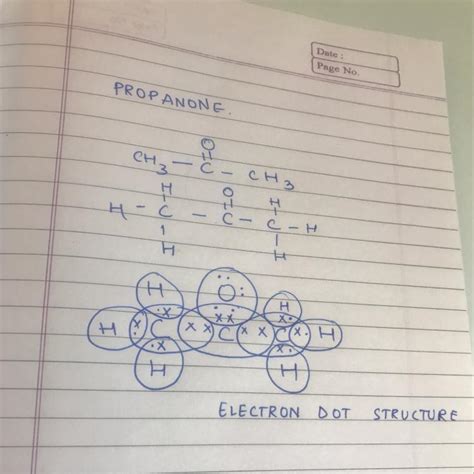 Date :
Page No.
PROPANONE.
O
||
CH₃ – C – CH₃
H O H
| || |
H – C – C – C – H
| |
H H
H O: H
H C xx C xx C H
H H
ELECTRON DOT STRUCTURE